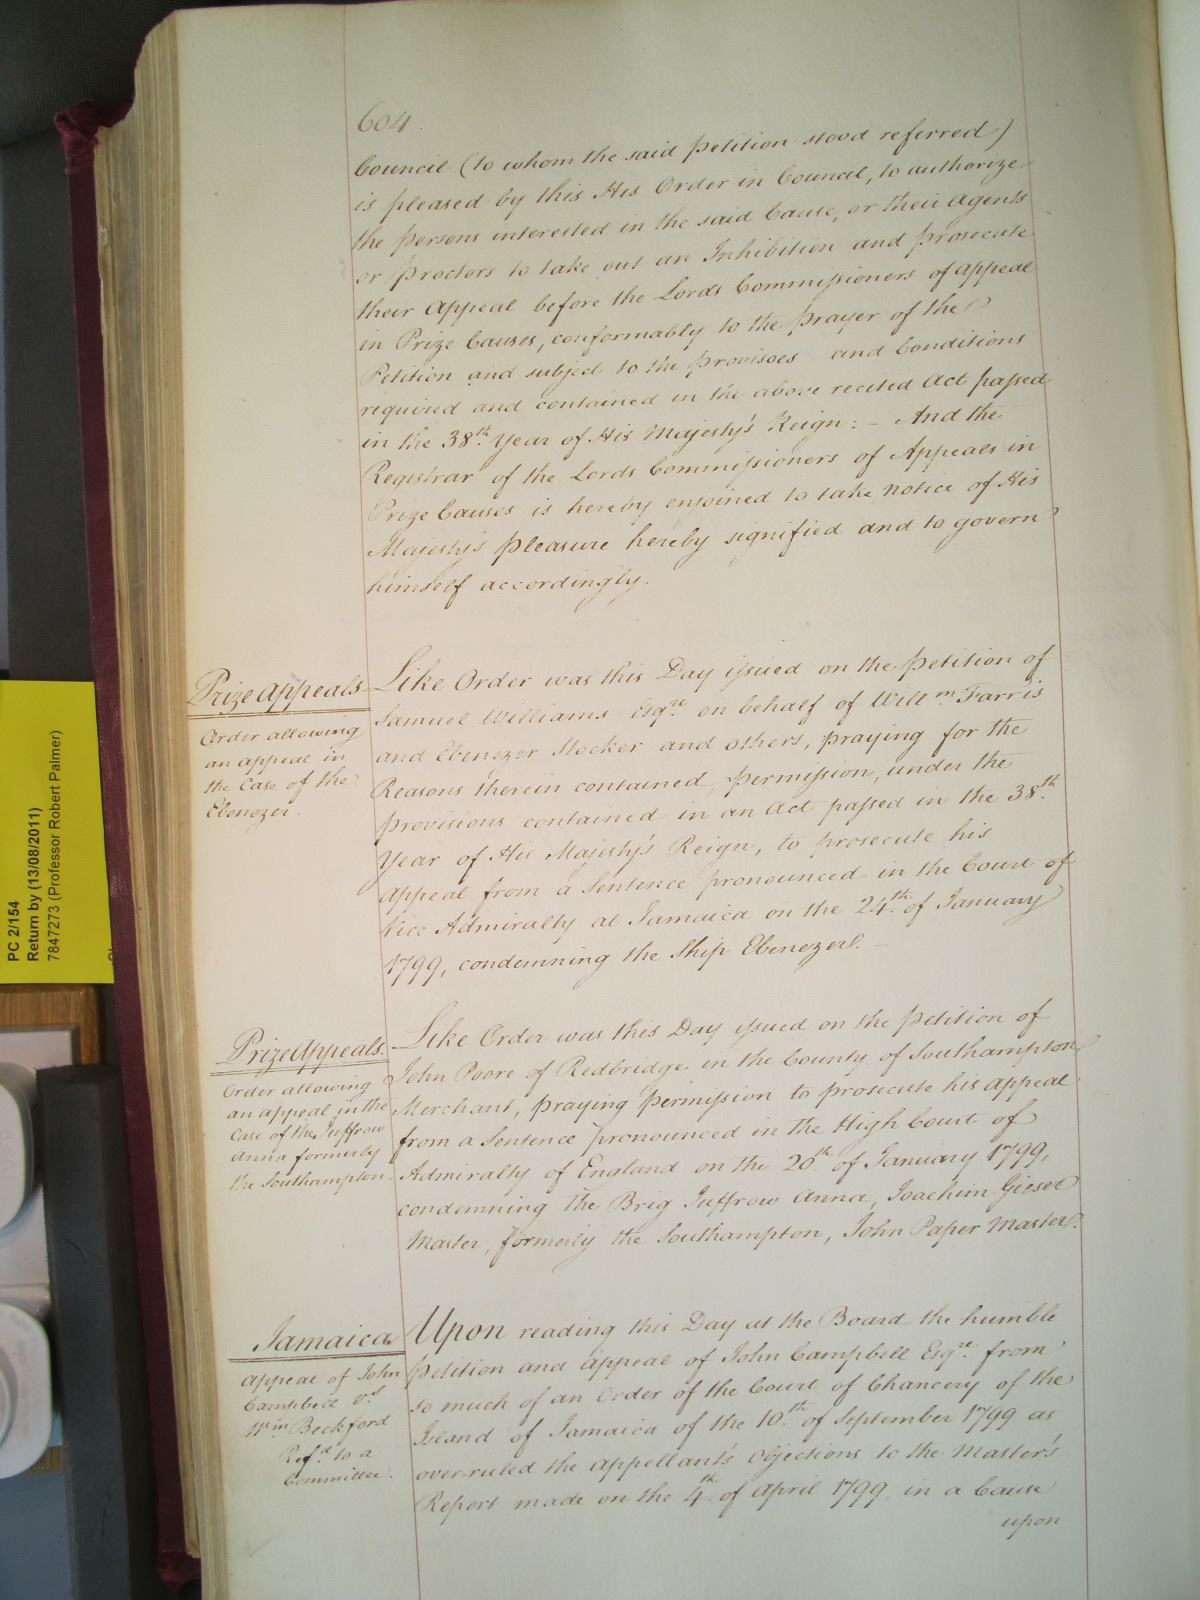 604.
Council (to whom the said petition stood referred)
is pleased by this His Order in Council, to authorize
the persons interested in the said Cause, or their agents
or Proctors to take out an Inhibition and prosecute
their Appeal before the Lords Commissioners of Appeal
in Prize Causes, conformably to the prayer of the
Petition and subject to the provisoes and Conditions
required and contained in the above recited Act passed
in the 38th. Year of His Majesty's Reign: - And the
Registrar of the Lords Commissioners of Appeals in
Prize Causes is hereby enjoined to take notice of His
Majesty's pleasure hereby signified and to govern
himself accordingly.
Prize Appeals
Order allowing
an appeal in
the Case of the
Ebenezer.
Like Order was this Day issued on the petition of
Samuel Williams Esqre. on behalf of Willm Farris
and Ebenezer Stocker and others, praying for the
Reasons therein contained, permission, under the
provisions contained in an Act passed in the 38th.
Year of His Majesty's Reign, to prosecute his
appeal from a Sentence pronounced in the Court of
Vice Admiralty at Jamaica on the 24th. of January
1799, condemning the Ship Ebenezer. -
Prize Appeals.
Order allowing
an appeal in the
Case of the Juffrow
Anna formerly
the Southampton.
Like Order was this Day issued on the petition of
John Poore of Redbridge in the County of Southampton
Merchant, praying permission to prosecute his appeal
from a Sentence pronounced in the High Court of
Admiralty of England on the 20th. of January 1799,
condemning the Brig Juffrow Anna, Joachim Giesel
Master, formerly the Southampton, John Paper Master.
Jamaica
Appeal of John
Campbell vs.
Wm. Beckford
Refd. to a
Committee.
Upon reading this Day at the Board the humble
petition and Appeal of John Campbell Esqre. from
so much of an Order of the Court of Chancery of the
Island of Jamaica of the 10th. of September 1799 as
over-ruled the appellant's Objections to the Master's
Report made on the 4th. of April 1799, in a Cause
upon
PC 2/154
Return by (13/08/2011)
7847273 (Professor Robert Palmer)